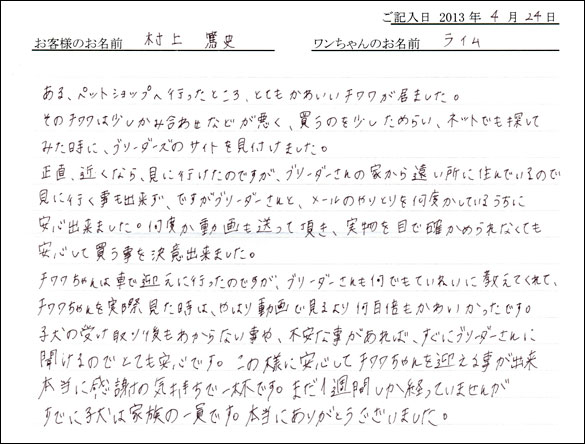 ご記入日 2013年4月24日
お客様のお名前 村上 篤史 ワンちゃんのお名前 ライム
ある、ペットショップへ行ったところ、とてもかわいいチワワが居ました。
そのチワワは少しかみ合わせなどが悪く、買うのを少しためらい、ネットでも探して
みた時に、ブリーダーズのサイトを見付けました。
正直、近くなら、見に行けたのですが、ブリーダーさんの家から遠い所に住んでいるので
見に行く事も出来ず、ですがブリーダーさんと、メールのやりとりを何度かしているうちに
安心出来ました。何度か動画も送って頂き、実物を目で確かめられなくても
安心して買う事を決意出来ました。
チワワちゃんは車で迎えに行ったのですが、ブリーダーさんも何でもていねいに教えてくれて、
チワワちゃんを実際見た時は、やはり動画で見るより何百倍もかわいかったです。
子犬の受け取り後もわからない事や、不安な事があれば、すぐにブリーダーさんに
聞けるのでとても安心です。この様に安心してチワワちゃんを迎える事が出来
本当に感謝の気持ちで一杯です。まだ1週間しか経っていませんが
すでに子犬は家族の一員です。本当にありがとうございました。